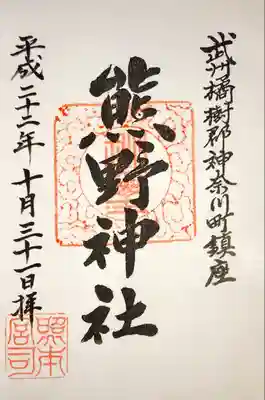 武州橘樹郡神奈川町鎮座
熊野神社
平成二十二年十月三十一日拝
照本宮司